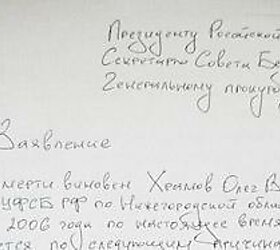 Президенту Российской
Секретарю Совета Бе
Генеральному прокуро
Заявление
мерти виновен Храмов Олег В
УФСБ РФ по Нижегородской обла
2006 года по настоящее время
ется по следующим причина